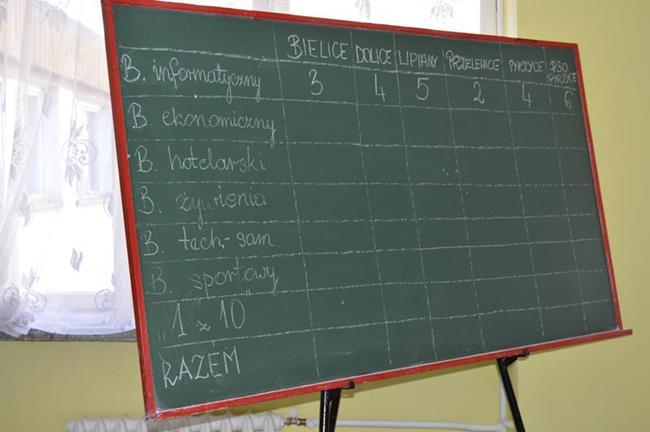 BIELICE DOLICE LIPIANY PRZELEWICE PYRZYCE PSO PYRZYCE
B. informatyczny 3 4 5 2 4 6
B. ekonomiczny
B. hotelarski
B. żywienia
B. tech.-sam
B. sportowy
"1 z 10"
RAZEM